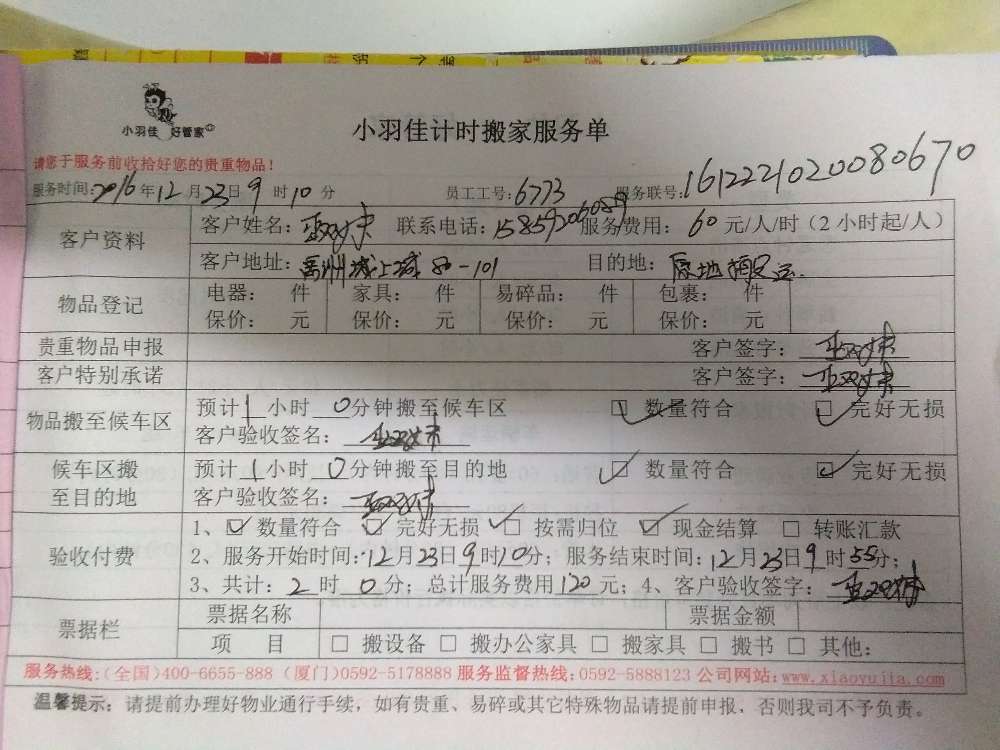 小羽佳 好管家
小羽佳计时搬家服务单
请您于服务前收拾好您的贵重物品！
服务时间：2016年12月23日9时10分 员工工号：6773 服务联号：1612221020080670
客户资料 客户姓名： 联系电话：15859206089 服务费用：60元/人/时（2小时起/人）
客户地址：禹州城上城80-101 目的地：原地搬运
物品登记 电器： 件 家具： 件 易碎品： 件 包裹： 件
保价： 元 保价： 元 保价： 元 保价： 元
贵重物品申报 客户签字：
客户特别承诺 客户签字：
物品搬至候车区 预计1小时0分钟搬至候车区 □ 数量符合 □ 完好无损
客户验收签名：
候车区搬至目的地 预计1小时0分钟搬至目的地 □ 数量符合 □ 完好无损
客户验收签名：
验收付费 1、□ 数量符合 □ 完好无损 □ 按需归位 □ 现金结算 □ 转账汇款
2、服务开始时间：12月23日9时10分；服务结束时间：12月23日9时55分；
3、共计：2时0分；总计服务费用120元；4、客户验收签字：
票据栏 票据名称 票据金额
项 目 □ 搬设备 □ 搬办公家具 □ 搬家具 □ 搬书 □ 其他：
服务热线：(全国)400-6655-888 (厦门)0592-5178888 服务监督热线：0592-5888123 公司网站：www.xiaoyujia.com
温馨提示：请提前办理好物业通行手续，如有贵重、易碎或其它特殊物品请提前申报，否则我司不予负责。